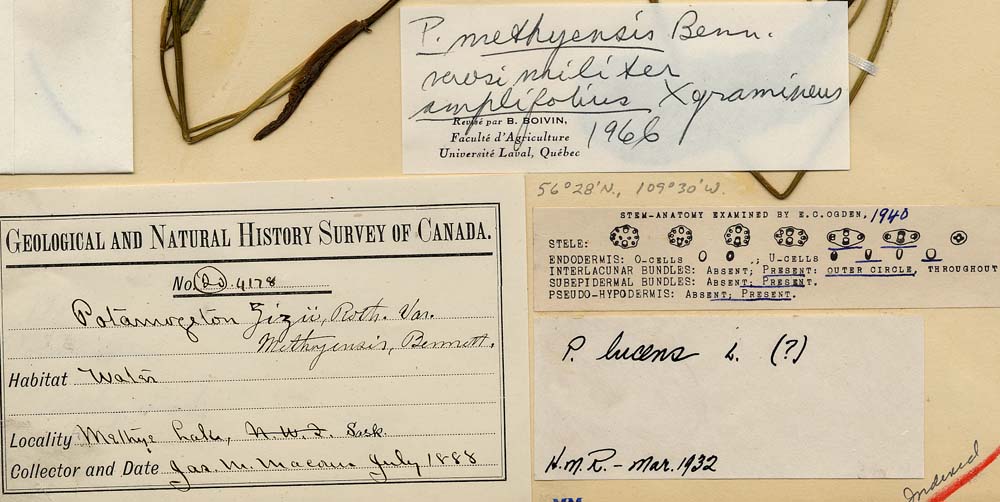 P. methyensis Benn.
verosimiliter
amplifolius X gramineus
Revisé par B. BOIVIN, 1966
Faculté d'Agriculture
Université Laval, Québec
56°28'N., 109°30'W.
GEOLOGICAL AND NATURAL HISTORY SURVEY OF CANADA.
No. (2) 4178
Potamogeton Zizii, Roth. Var.
Methyensis, Bennett.
Habitat Water
Locality Methye Lake, N.W.T. Sask.
Collector and Date Jas. M. Macoun July 1888
STEM-ANATOMY EXAMINED BY E.C.OGDEN, 1940
STELE:
ENDODERMIS: O-CELLS ; U-CELLS
INTERLACUNAR BUNDLES: ABSENT; PRESENT: OUTER CIRCLE, THROUGHOUT
SUBEPIDERMAL BUNDLES: ABSENT; PRESENT.
PSEUDO-HYPODERMIS: ABSENT; PRESENT.
P. lucens L. (?)
H.M.R. - Mar. 1932
Indexed